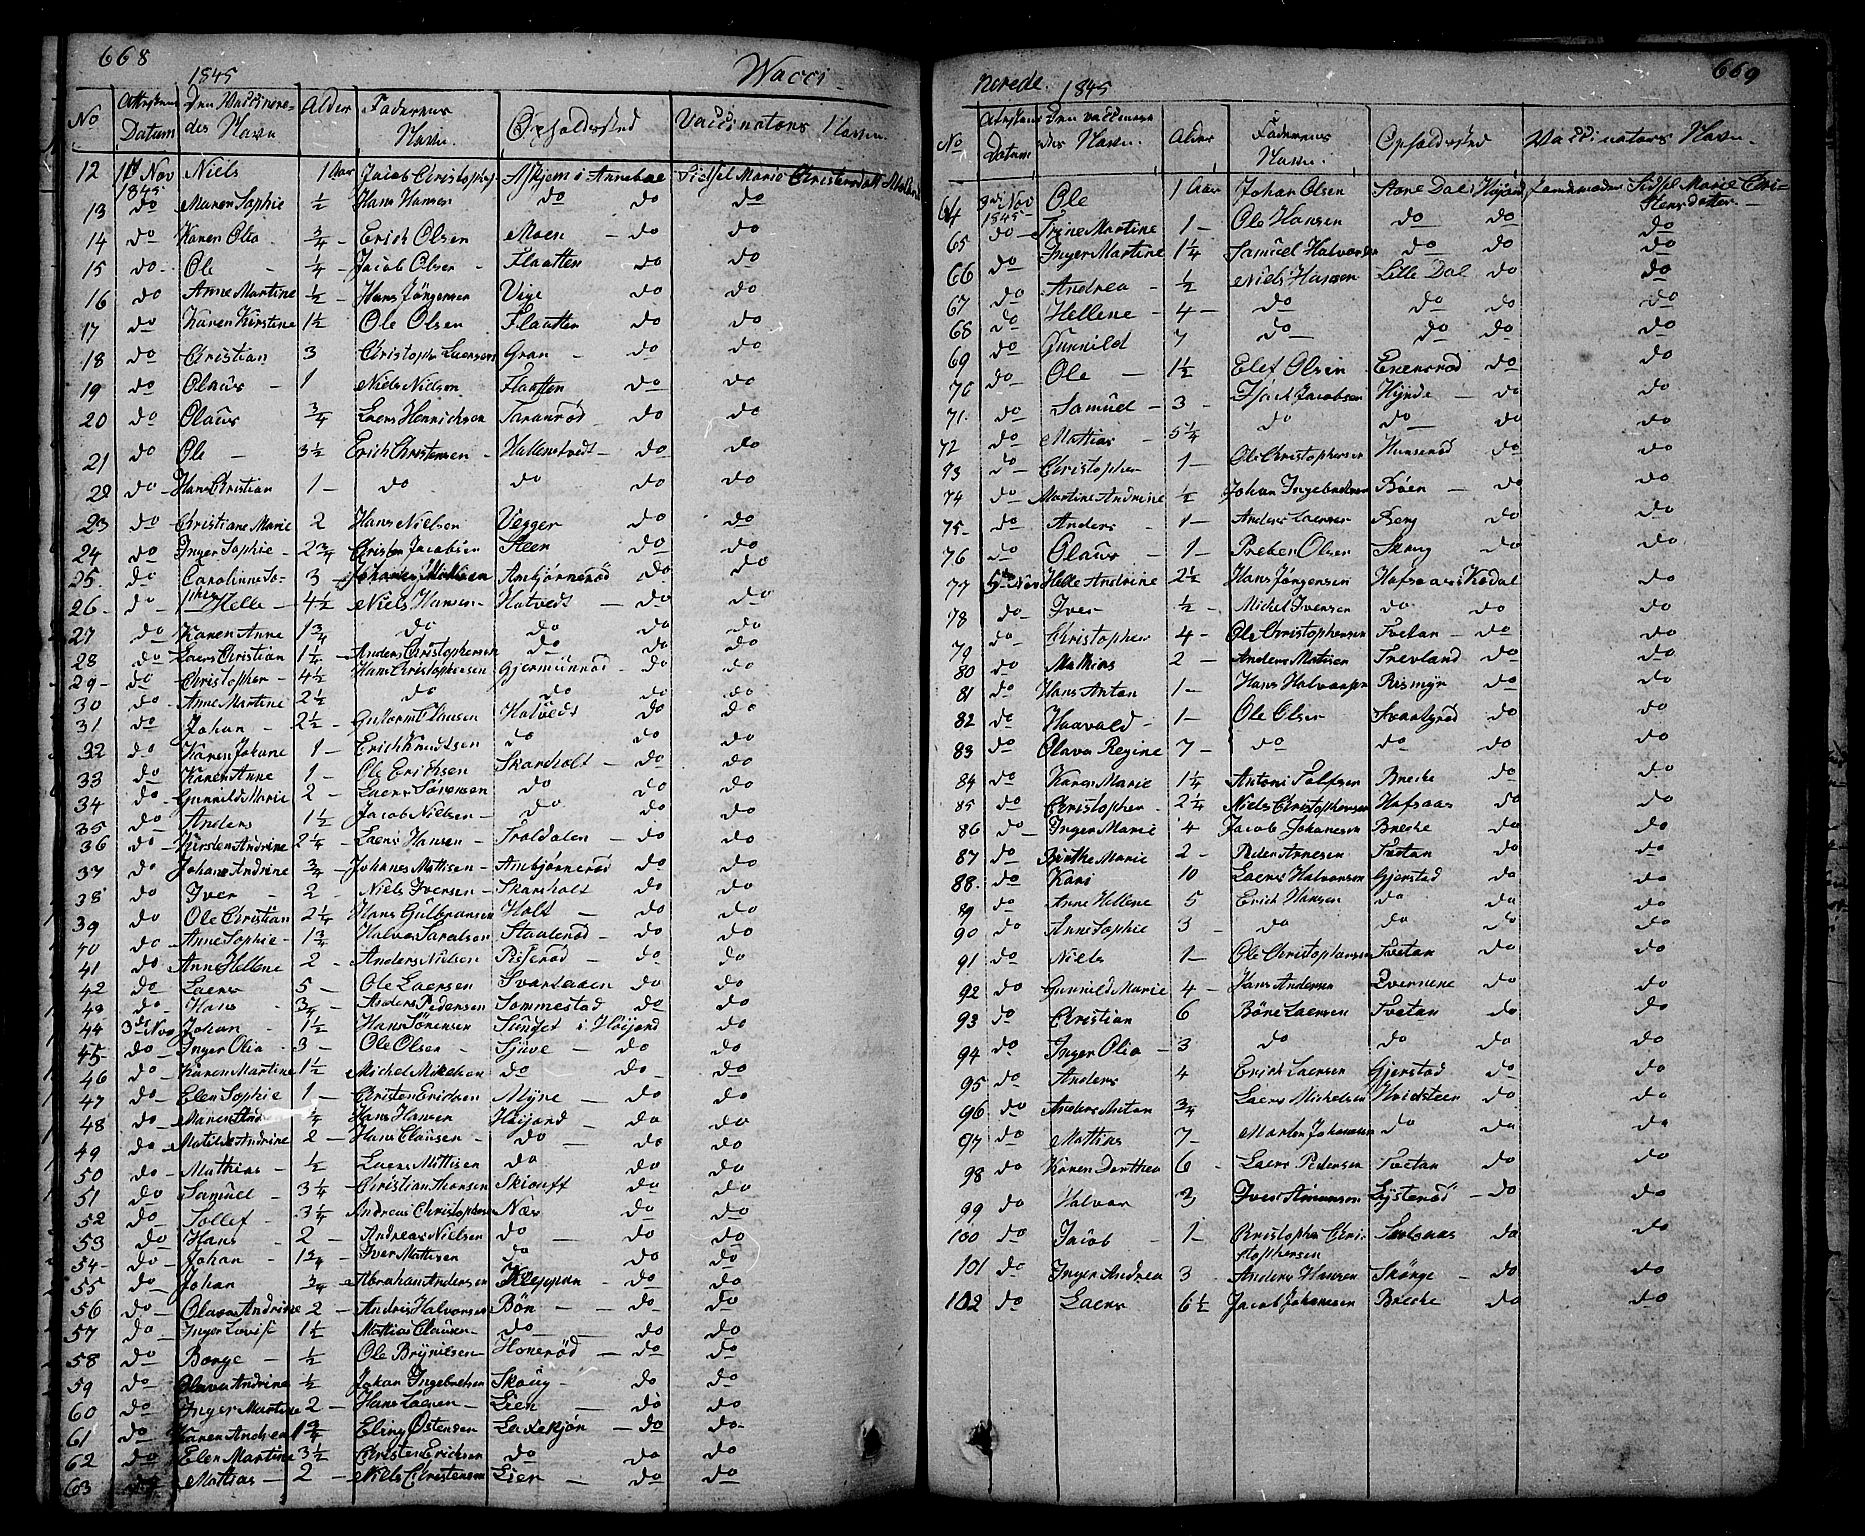 668
1845
Wacci-
No Attestens Datum Den Vaccineredes Navn Alder Faderens Navn. Opholdssted Vaccinators Navn
12 1ste Nov 1845 Niels 1 Aar Jacob Christophs Askjem i Annebue Sidsel Marie Christensdatt
13 do Maren Sophie ½ Hans Hansen do do do
14 do Karen Olea ¾ - Erich Olsen Moen - do do
15 do - Ole - ¼ - Jacob Olsen - Flaatten do do
16 do Anne Martine ½ - Hans Jörgensen Vige do do
17 do Karen Kirstine 1½ Ole Olsen Flaatten do do
18 do Christian 3 Christopher Laersen Gran - do do
19 do Olaus - 1 Niels Nielsen Flaatten do do
20 do Olaus ¾ - Laers Henrichsen Taranrød do do
21 do Ole - 3½ Erich Christensen - Hallenstvedt - do do
22 do - Hans Christian 1 - do do do do
23 do - Christiane Marie 2 Hans Nielsen Vegger do do
24 do - Inger Sophie - 2¾ Christen Jacobsen Steen do do
25. do Caroline So- 3 - Johannes Mathisen Ambjørnerød do do
26 - do - phie Helle - 4½ Niels Hansen - Hatvedt - do do
27 do Karen Anne 1¾ do do do do
28 do Laers Christian 1¼ - Anders Christophersen do do do
29 - do - Christopher - 4½ Hans Christophersen Gjermunrød - do do
30 do Anne Martine 2½ do do do do
31 do Johan - 2½ - Guttorm Clausen Hatvedt do do
32 do - Karen Johane 1 - Erich Knudtsen do do do
33 do Karen Anne 1 - Ole Erichsen Skarsholt - do do
34 do - Gunnild Marie 2 - Laers Sørensen do do do
35 do Anders 1½ Jacob Nielsen - do do do
36 do - Kirsten Andrine 2¼ Laers Hansen - Troldalen - do do
37 do Johane Andrine ¾ - Johanes Mattisen - Ambjørnerød do do
38 do Iver - 2 - Niels Iversen - Skarsholt - do do
39 do Ole Christian 2¼ Hans Gulbransen Holt - do do
40 do - Anne Sophie - 1¾ Halvor Saralsen Staalerød - do do
41 do Anne Hellene 2 - Anders Nielsen Pisserød - do do
42 do - Laers 5 - Ole Laersen Svartaaen do do
43 do - Hans - ¾ - Anders Pedersen Sommestad do do
44 3die Nov Johan - 1½ Hans Sørensen Sundset i Höijord do
45 do - Inger Olia - 3 - Ole Olsen - Sjüve - do do
46 do - Karen Martine 1½ Michel Mikelsen do do - do
47 do - Elen Sophie 1 - Christen Erichsen Myne - do do
48 do - Maren And ¼ Hans Hansen Höijord - do do
49 do - Matilde Andrine 2 - Hans Clausen - do - do do
50 do - Mathias - ½ Laers Mattisen do do do
51 do Samuel - 3¼ Christian Thorsen Skiouff do do
52 do - Tollef - 3¼ Andreas Christophersen Nær do do
53 do Hans - 2 - Andreas Nielsen do - do do
54 - do - Johan - 1¾ Iver Mattisen do do do
55 do - Johan ¾ - Abraham Andersen Kleppan - do do
56 do - Olava Andrine 2 - Andris Halvorsen Bön - do do
57 do - Inger Lovise 1½ Mathias Clausen - do - do do
58 do Borge - ½ Ole Brynilsen - Honerød - do - do
59 do - Olava Andrine ½ Johan Ingebretsen Skoug - do do
60 do - Inger Martine 2 - Hans Laersen - Lien - do do
61 do - Karen Andrea 1¾ Eling Østensen Ladeskjøn - do do
62 do Elen Martine 3½ Christen Erichsen do do do
63 do Mathias - 2 - Niels Christensen Lien - do do
nerede.
1845
669
No Attestens Datum Den vaccineredes Navn. Alder Faderens Navn. Opholdssted Vaccinators Navn
64 3die Nov 1845 Ole 1 Aar Johan Olsen Store Dal i Höijord Jordmoder Sidsel Marie Chri-
stensdatter -
65 do - Trine Martine 1 - Ole Hansen do do do
66 do Inger Martine 1¼ Samuel Halvorsen do do do
67 do Andrea - ½ Niels Hansen Lille Dal do do
68 do Hellene - 4 - do do do do
69 do Gunnild 7 do do do
70 do - Ole - 1½ Elef Olsen Enersrød do do
71. do Samuel - 3 - Isach Jacobsen Hynde - do do
72 do Mathias - 5¼ do do do
73 do Christopher 1 - Ole Christophersen Hunserød do do
74 do - Martine Andrine ½ Johan Ingebretsen Böen - do do
75 - do Anders - 1 - Anders Laersen Berg do do
76 do Olaus - 1 - Preben Olsen Skoug do do
77 5te Nov Helle Andrine 2½ Hans Jørgensen Hafsaas i Kodal do
78 do - Iver ½ - Michel Iversen do do do
79 do Christopher 4 - Ole Christophersen Tvetan - do do
80 do Mathias 2 - Anders Matisen Trevland do do
81 do Hans Anton 1 - Hans Halvorsen Rismyr do do
82 do Haavald - 1 - Ole Olsen Svartsrød do do
83 do Olava Regine 7 - do do do do
84 do Karen Marie 1¼ Antoni Tolfsen Breche do do
85 do Christopher - 2¼ Niels Christophersen Hafsaas do do
86 do - Inger Marie 4 Jacob Johanesen Breche do do
87 do Birthe Marie 2 - Peder Arnesen Tvetan do do
88. do Kari 10 Laers Halvorsen Gjerstad do do
89 do Anne Hellene 5 Erich Hansen do do do
90 do Anne Sophie 3 - do do do do
91 do Niels 1 - Ole Christophersen Tvetan do do
92 do Gunnild Marie 4 - Hans Andersen do do
93 do Christian 6 Böre Laersen Tvetan do do
94 do Inger Olia - 3 do do do do
95 do Anders 4 Erich Laersen Gjerstad do do
96 do Anders Anton ¾ Laers Michelsen Hvidsteen do do
97 do Mathias 7 - Morten Johannesen do do do
98 do Karen Dorthea 6 - Laers Pedersen Tvetan do do
99 do Halvor 3 Iver Amonsen Lysterød - do do
100 do Jacob - 1 - Christopher Chri- do do
stophersen
101 do Inger Andrea 3 - Anders Hansen Skörge - do do
102 do Laers 6½ Jacob Johanesen Breche do do